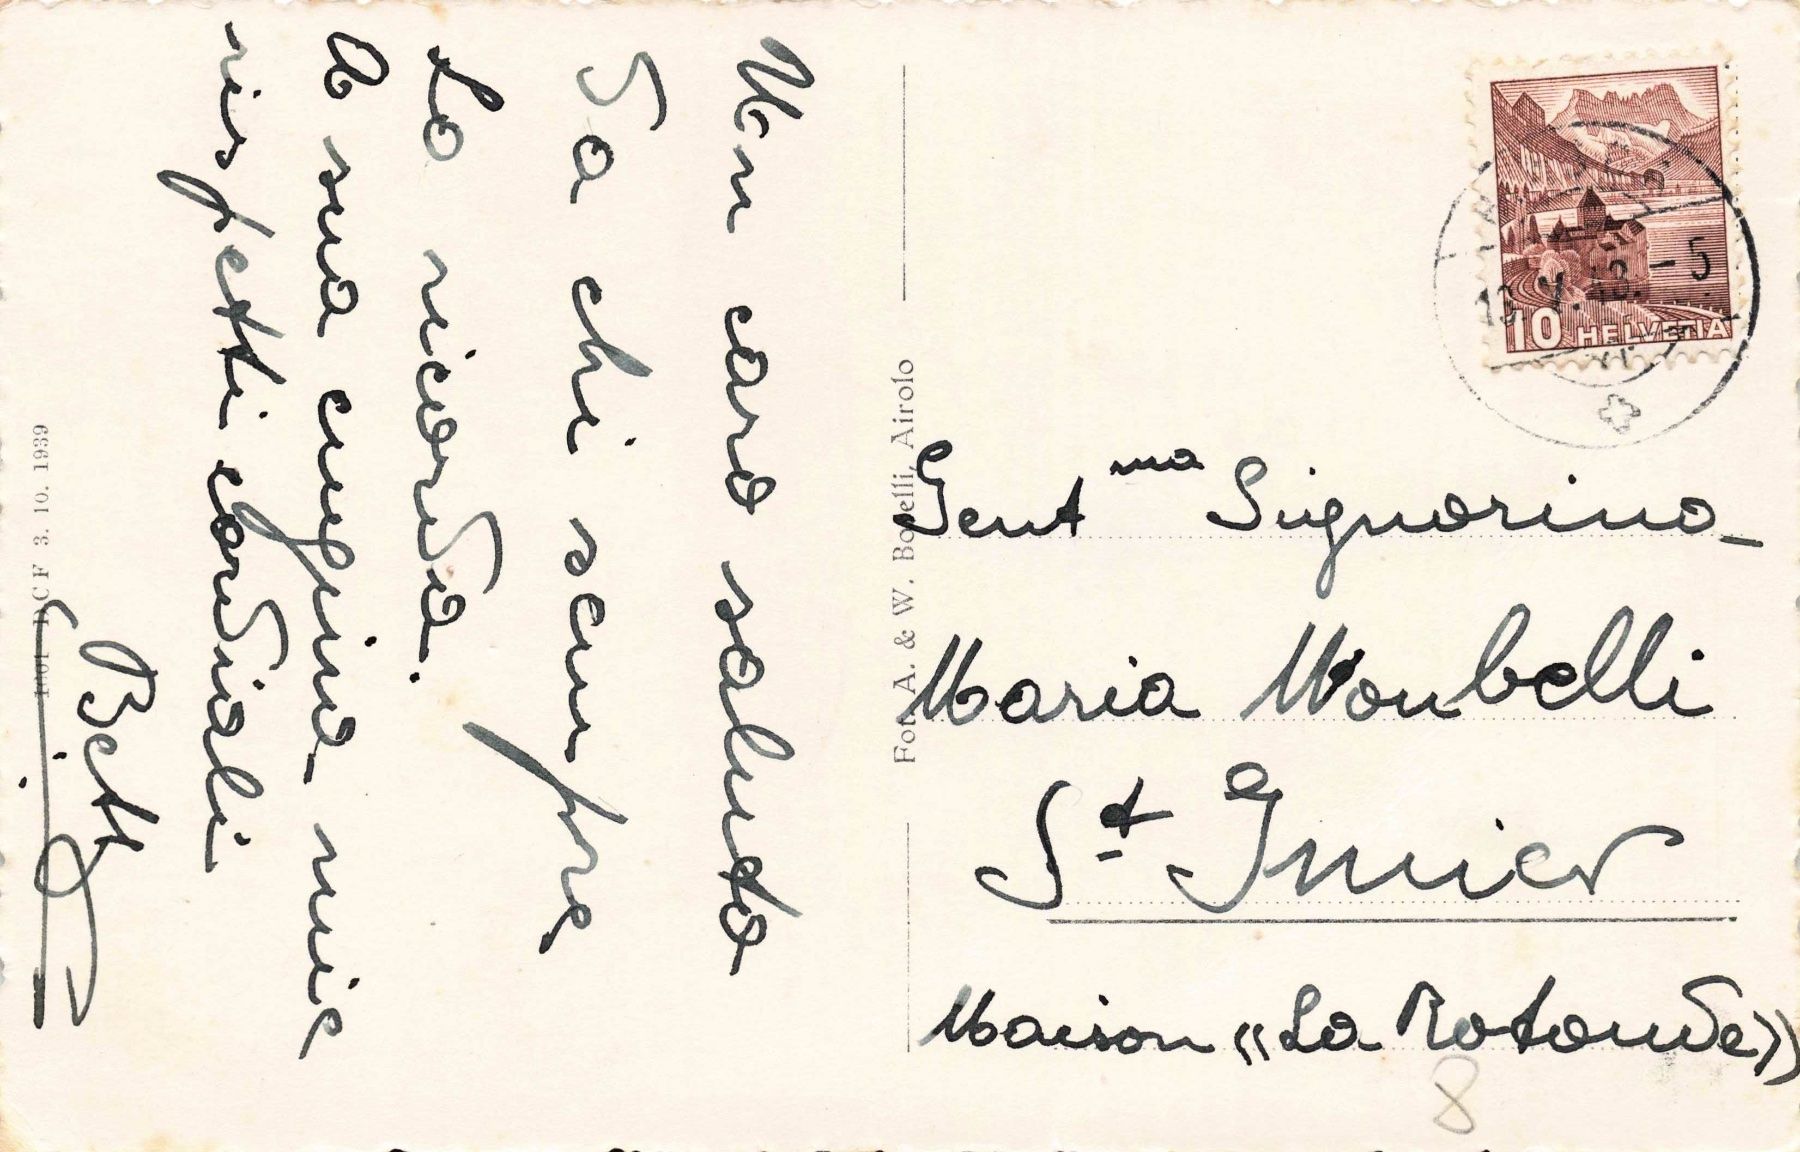 Un caro saluto
da chi sempre
La ricorda.
A sua cugina mie
rispetti cordiali
Betty
1001 DCF 3. 10. 1939
Fot. A. & W. Borelli, Airolo
10 HELVETIA
V. 43. – 5
Gent ma Signorina
Maria Mombelli
St Imier
Maison «La Rotonde»
8